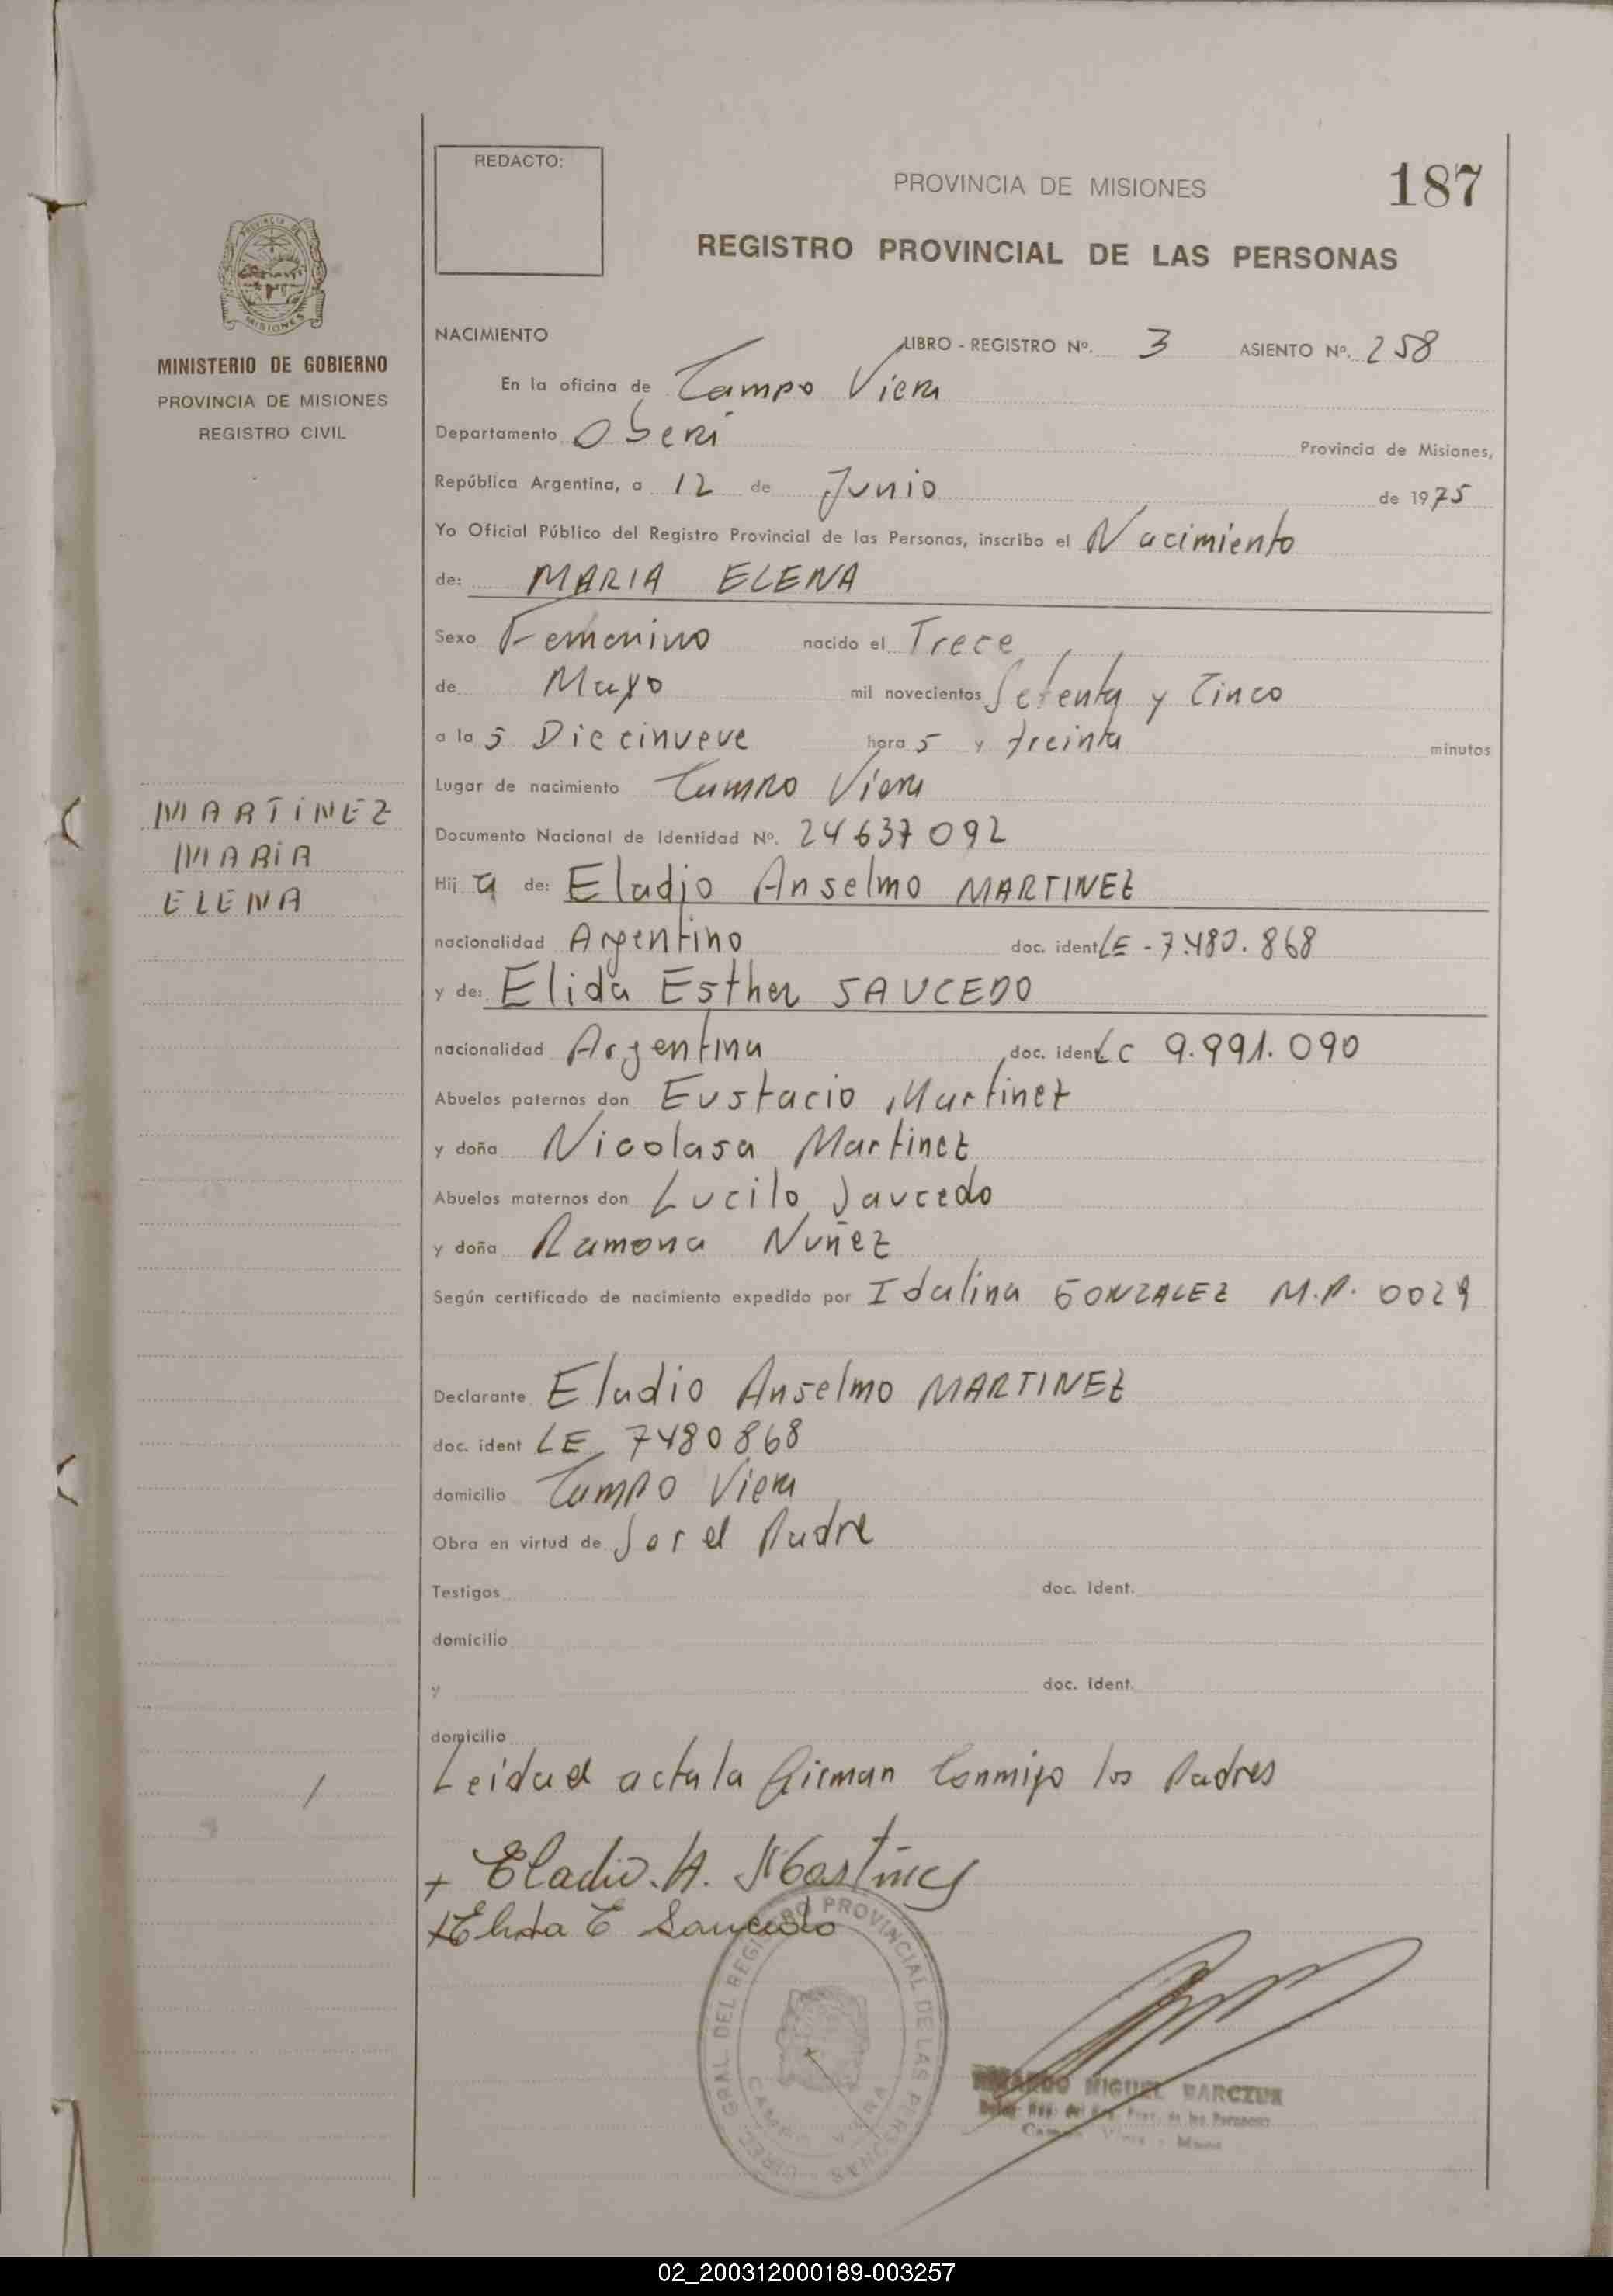 REDACTO:
PROVINCIA DE MISIONES
187
REGISTRO PROVINCIAL DE LAS PERSONAS
PROVINCIA DE MISIONES
MINISTERIO DE GOBIERNO
PROVINCIA DE MISIONES
REGISTRO CIVIL
NACIMIENTO LIBRO - REGISTRO Nº. 3 ASIENTO Nº. 258
En la oficina de Campo Viera
Departamento Oberá Provincia de Misiones,
República Argentina, a 12 de Junio de 1975
Yo Oficial Público del Registro Provincial de las Personas, inscribo el Nacimiento
de: MARIA ELENA
Sexo Femenino nacido el Trece
de Mayo mil novecientos Setenta y Cinco
a la s Diecinueve hora s y treinta minutos
Lugar de nacimiento Campo Viera
MARTINEZ
MARIA
ELENA
Documento Nacional de Identidad Nº. 24637092
Hij a de: Eladio Anselmo MARTINEZ
nacionalidad Argentino doc. ident LE - 7.480.868
y de: Elida Esther SAUCEDO
nacionalidad Argentina doc. ident LC 9.991.090
Abuelos paternos don Eustacio Martinez
y doña Nicolasa Martinez
Abuelos maternos don Lucilo Saucedo
y doña Ramona Nuñez
Según certificado de nacimiento expedido por Idalina GONZALEZ M.P. 0029
Declarante Eladio Anselmo MARTINEZ
doc. ident LE 7480868
domicilio Campo Viera
Obra en virtud de Ser el Padre
Testigos doc. Ident.
domicilio
y doc. Ident.
domicilio
Leida el acta la firman conmigo los Padres
+ Eladio. A. Martinez
+ Elida E Saucedo
DIREC. GRAL. DEL REGISTRO PROVINCIAL DE LAS PERSONAS
CAMPO VIERA
MIGUEL
02_200312000189-003257